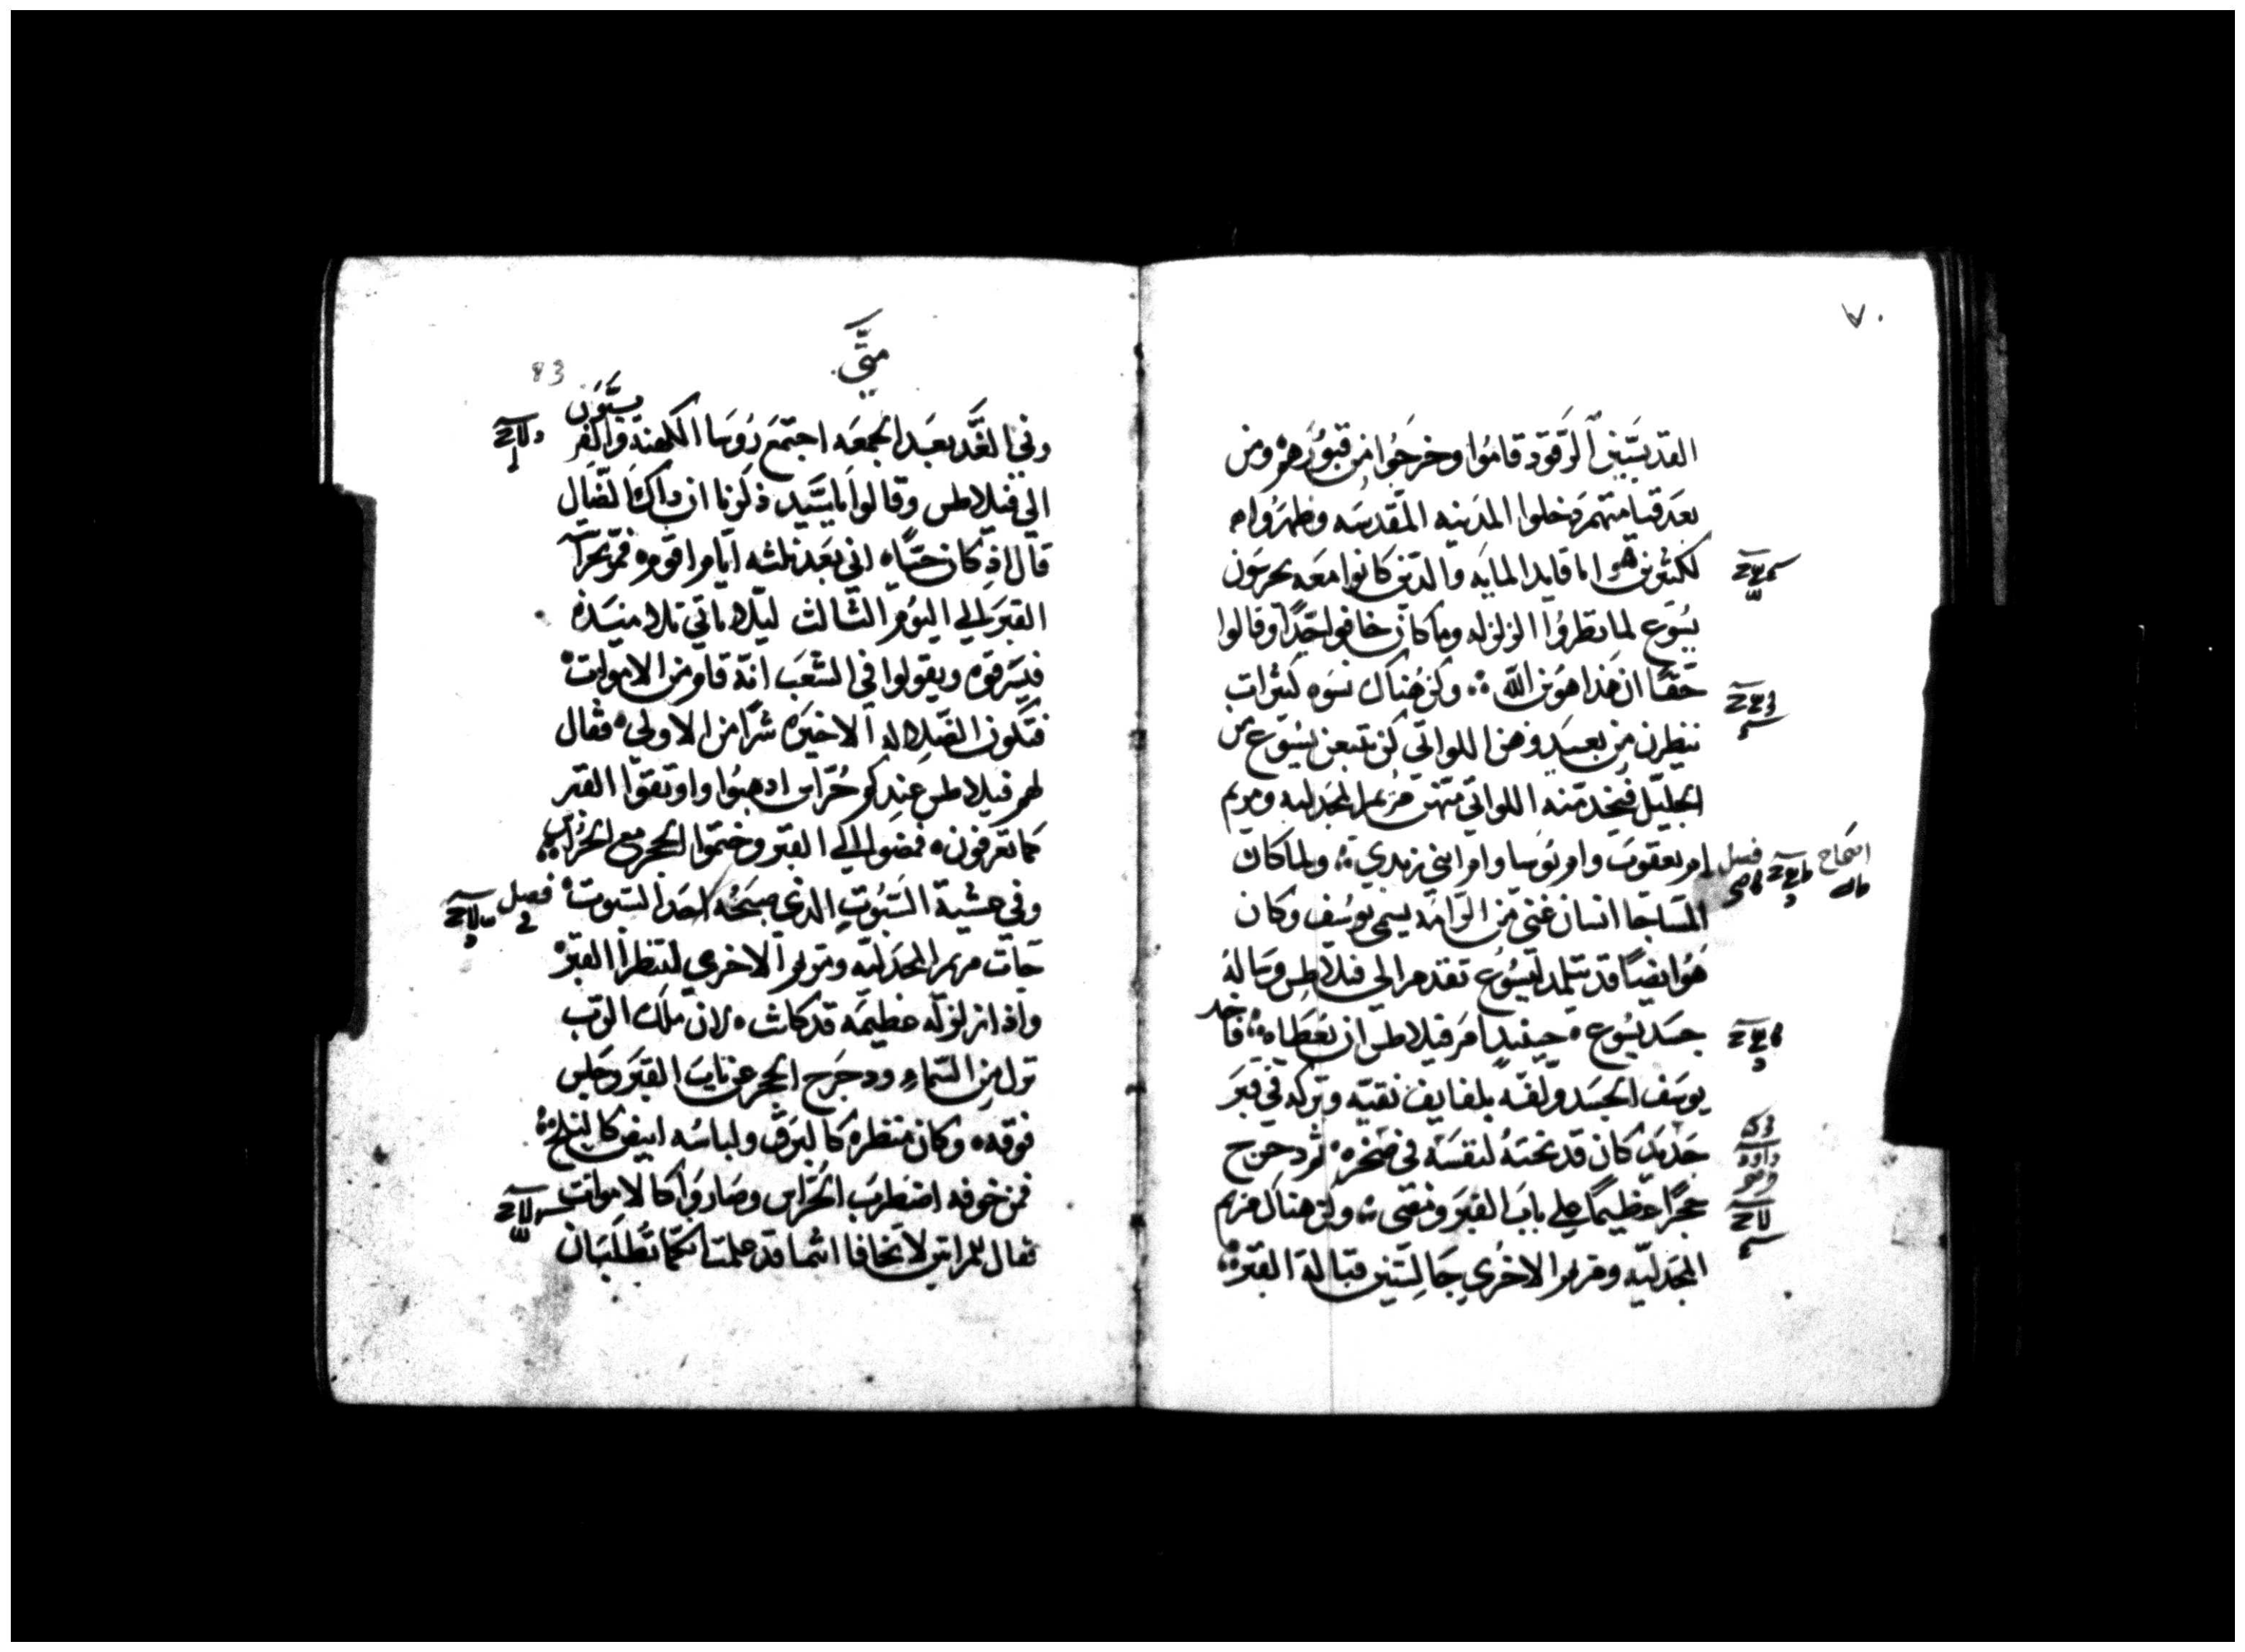 ٧٠
القديسين الرقود قاموا وخرجوا من قبورهم ومن
بعد قيامتهم دخلوا المدينه المقدسه وظهروا
لكثيرين اما قايد المايه والدين كانوا معه يحرسون
يسوع لما نظروا الزلزله وما كان خافوا جدا وقالوا
حقا ان هذا هو بن الله وكن هناك نسوه كثيرات
ينظرن من بعيد وهن اللواتي كن تبعن يسوع من
الجليل فيخدمنه اللواتي منهن مريم المجدليه ومريم
ام يعقوب وام يوسا وام ابني زبدي ولما كان
فصل
اصحاح
المسا جا انسان غني من الرامه يسمى يوسف وكان
هو ايضا قد تتلمد ليسوع تقدم الى فيلاطس وساله
جسد يسوع حينيد امر فيلاطس ان يعطاه فاخد
يوسف الجسد ولفه بلفايف نقيه وتركه في قبر
جديد كان قد نحته لنفسه في صخره ثم دحرج
حجرا عظيما على باب القبر ومضى وكن هناك مريم
المجدليه ومريم الاخرى جالستين قبالة القبر
متى
83
وفي الغد بعد الجمعه اجتمع روسا الكهنه والفريسيون
الي فيلاطس وقالوا يا سيد ذكرنا ان داك الضال
قال اذ كان حيا اني بعد ثلثه ايام اقوم فمر بحراسة
القبر الي اليوم الثالث ليلا ياتي تلاميذه
فيسرقوه ويقولوا في الشعب انه قام من الاموات
فتكون الضلاله الاخيره شرا من الاولى فقال
لهم فيلاطس عندكم حراس ادهبوا واوثقوا القبر
كما تعرفون فمضوا الي القبر وختموا الحجر مع الحراس
وفي عشية السبوت الدي صبحه احد السبوت
فصل
جات مريم المجدليه ومريم الاخرى لتنظرا القبر
واذا زلزله عظيمه قد كانت لان ملك الرب
نزل من السماء ودحرج الحجر عن باب القبر وجلس
فوقه وكان منظره كالبرق ولباسه ابيض كالثلج
فمن خوفه اضطرب الحراس وصاروا كالاموات
فقال للمراتين لا تخافا انتما قد علمت انكما تطلبان